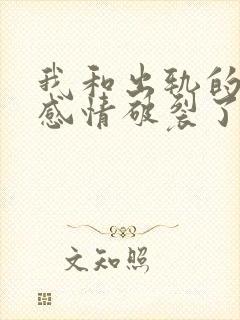 我和出轨的
感情破裂了
文知照